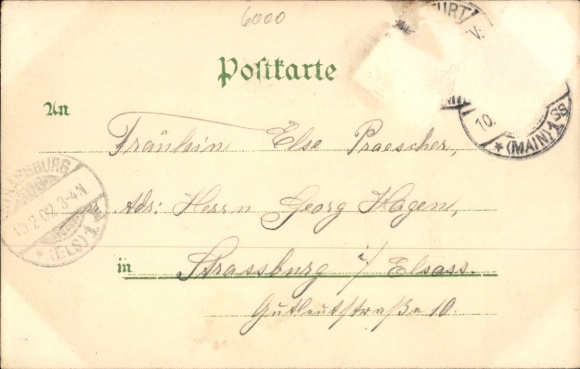 6000
Postkarte
An
Fräulein Else Praescher,
Adr: Herrn Georg Hagen,
in Strassburg i/ Elsass.
Gutleutstraße 10.
FURT
10.
* (MAIN) 1
SSBURG
2.02.3-4N
* (ELS) 1